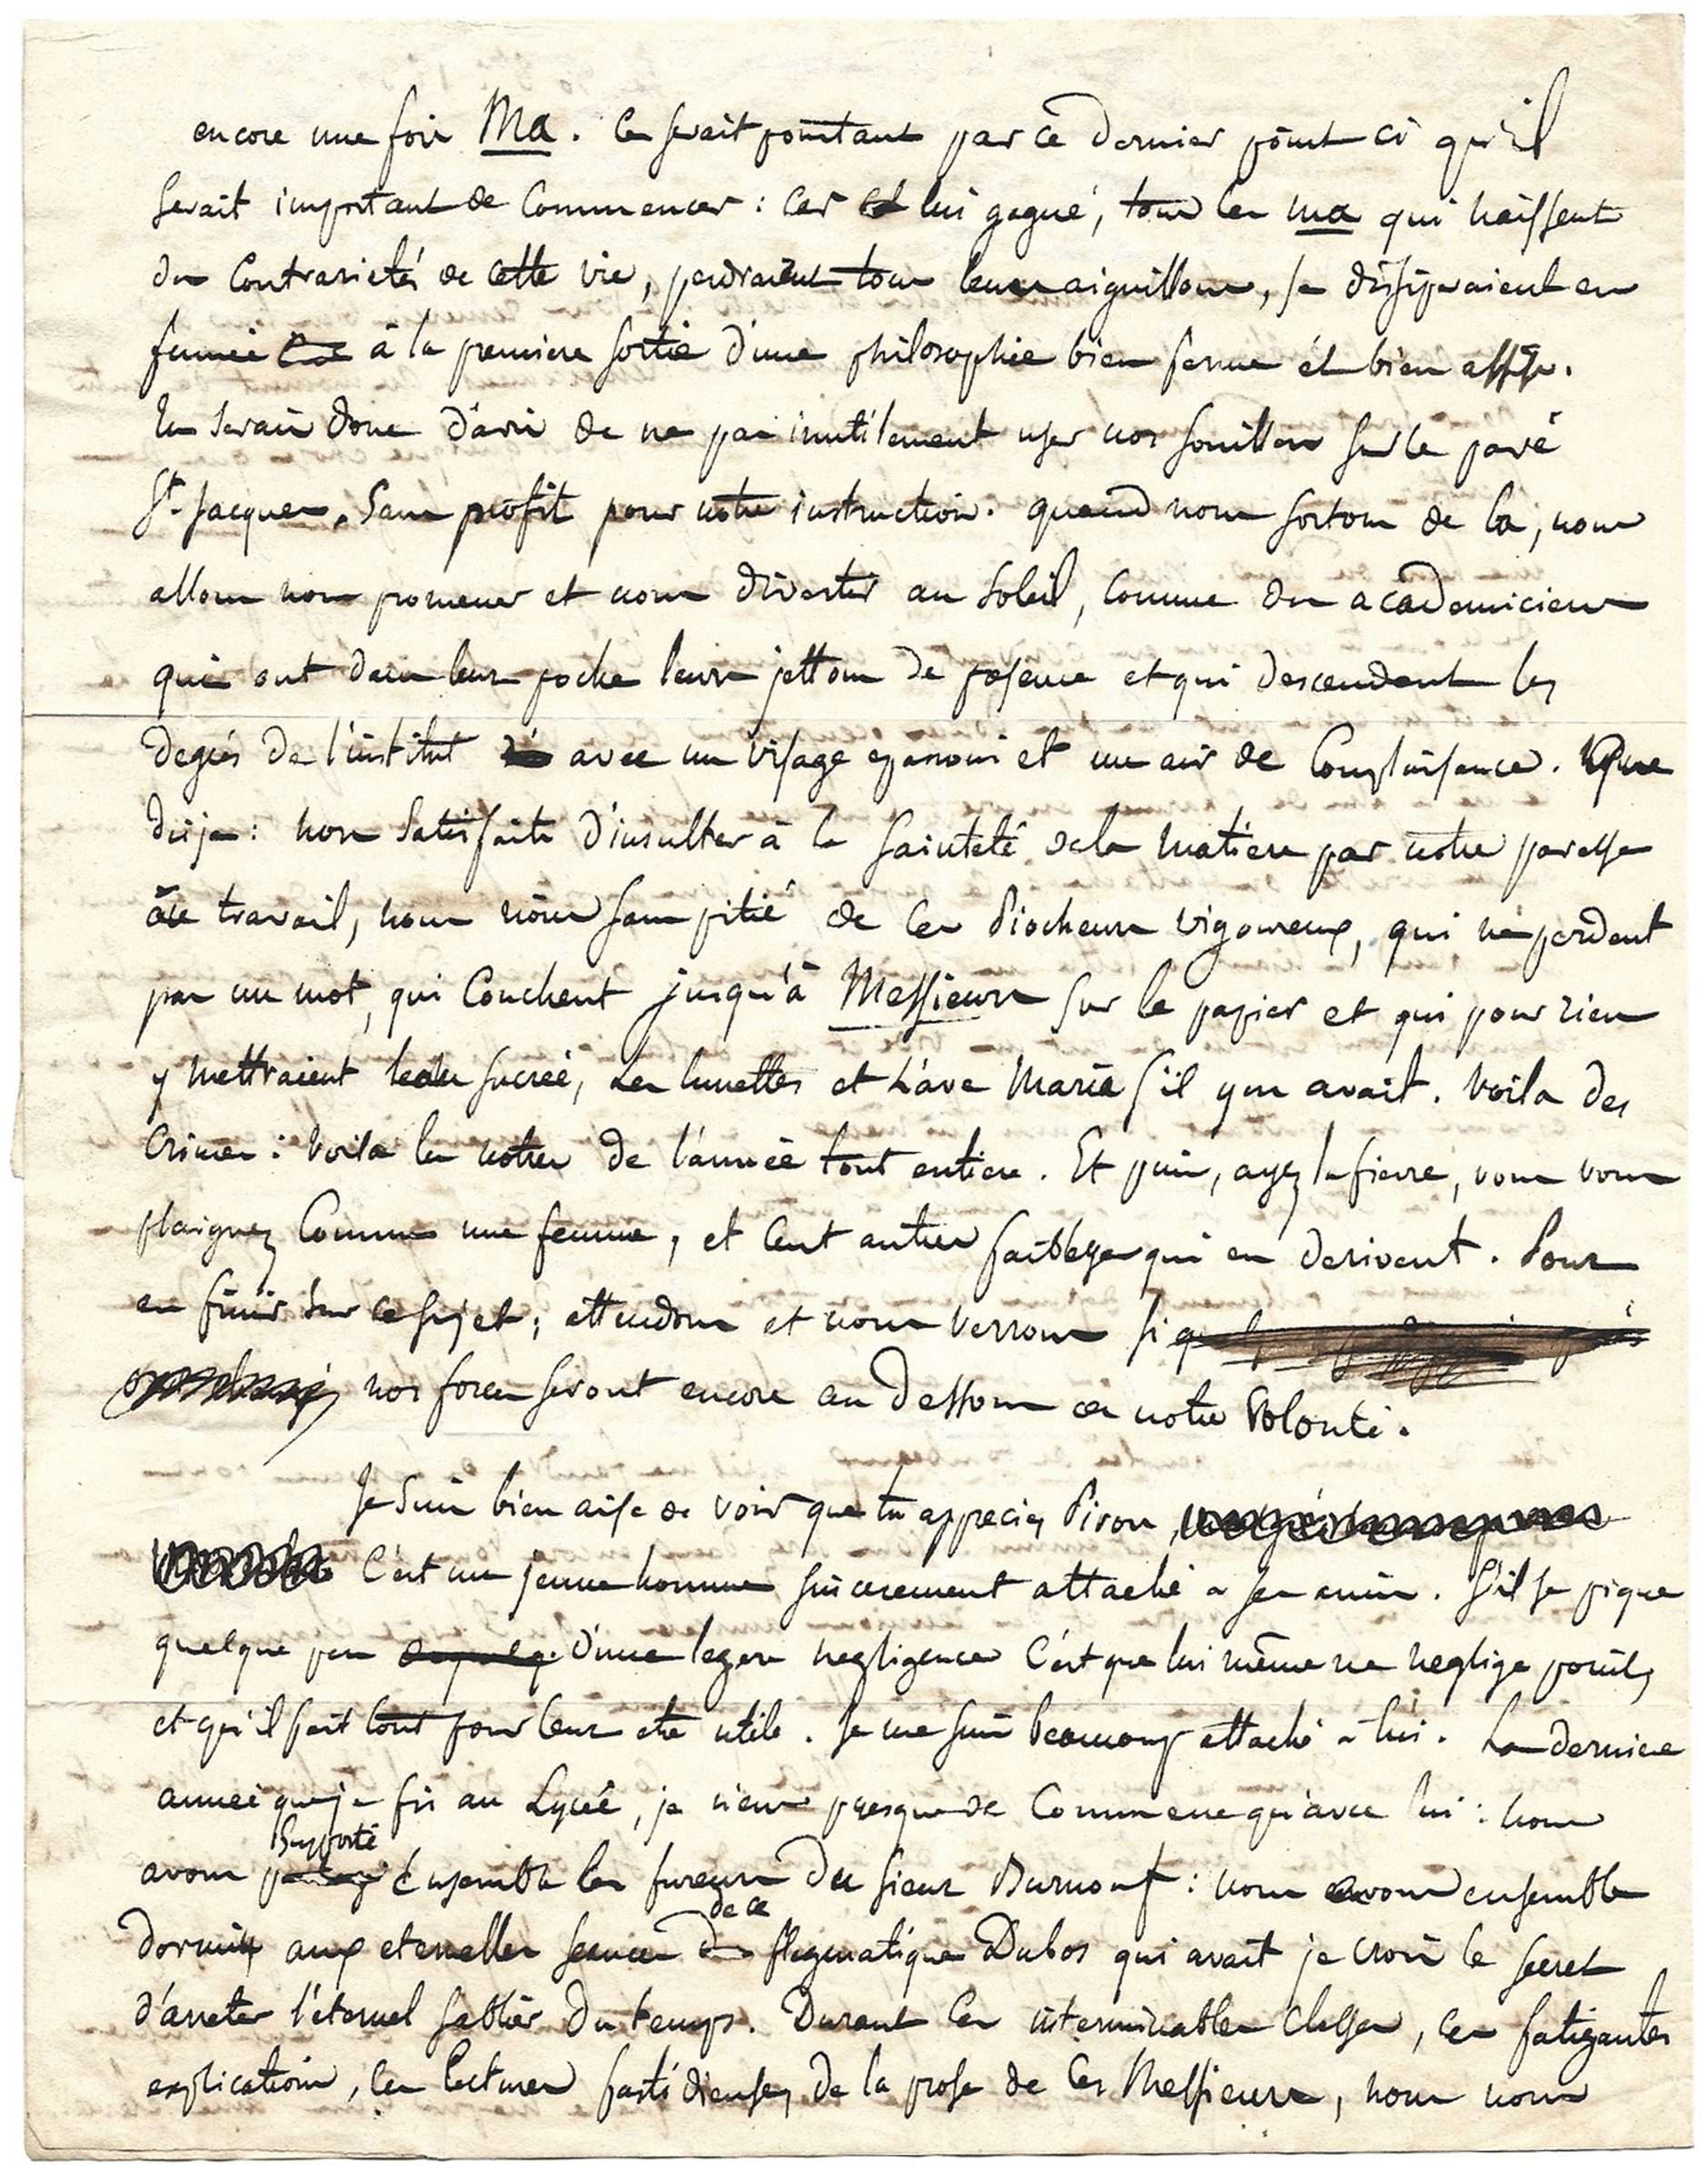 encore une fois Ma. Ce serait pourtant par ce dernier point ci qu'il
serait important de commencer : car lui gagné, tous les ma qui naissent
des contrarietés de cette vie, perdraient tous leurs aiguillons, se dissiperaient en
fumée à la premiere sortie d'une philosophie bien ferme et bien assise.
Je serais donc d'avis de ne pas inutilement user nos souliers sur le pavé
St. Jacques, sans profit pour notre instruction. quand nous sortons de la, nous
allons nous promener et nous divertir au soleil, comme des academiciens
qui ont dans leur poche leurs jettons de présence et qui descendent les
degrés de l'institut avec un visage epanoui et un air de complaisance. Que
dis je : non satisfaits d'insulter à la sainteté de la matiere par notre paresse
au travail, nous rions sans pitié de ces Piocheurs vigoureux, qui ne perdent
pas un mot, qui couchent jusqu'à Messieurs sur le papier et qui pour rien
y mettraient l'eau sucrée, les lunettes et L'ave Maria s'il y en avait. Voila des
crimes : voila les notres de l'année tout entiere. Et puis, ayez la fievre, vous vous
plaignez comme une femme, et cent autres faiblesses qui en derivent. Pour
en finir sur ce sujet ; attendons et nous verrons si
nos forces seront encore au dessous de notre volonté.
Je suis bien aise de voir que tu apprecies Piron,
C'est un jeune homme sincerement attaché a ses amis. S'il se pique
quelque peu d'une legere negligence c'est que lui même ne neglige point,
et qu'il fait tout pour leur etre utile. Je me suis beaucoup attaché a lui. La derniere
année que je fis au Lycée, je n'eus presque de commerce qu'avec lui : nous
avons supporté ensemble les fureurs du sieur Burnouf : nous avons ensemble
dormi aux eternelles seances de ce flegmatique Dubos qui avait je crois le secret
d'arreter l'éternel sablier du temps. Durant ces interminables classes, ces fatigantes
explications, ces lectures fastidieuses de la prose de ces Messieurs, nous nous